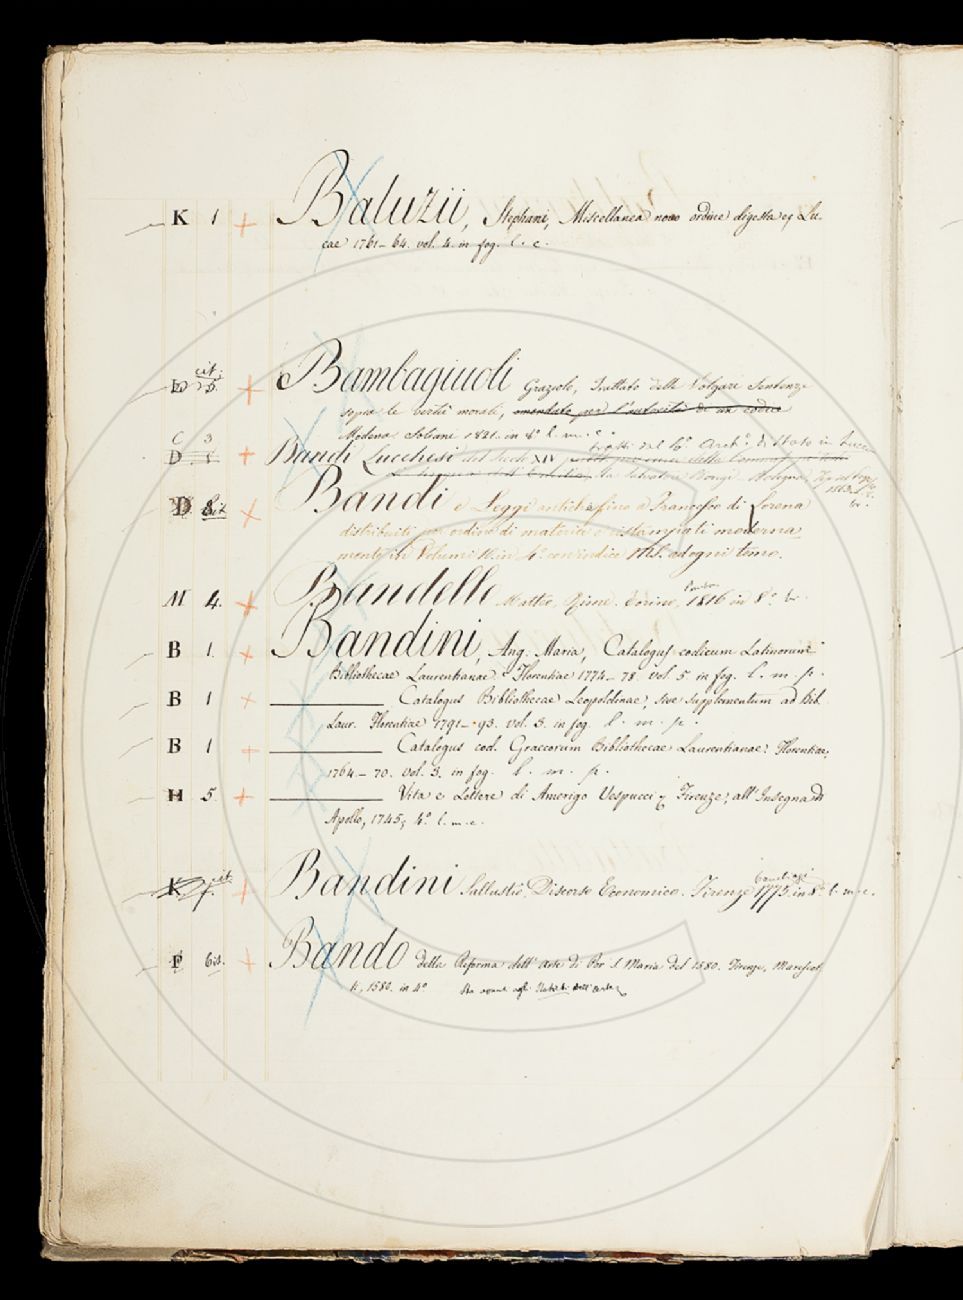 K 1 + Baluzii, Stephani, Miscellanea novo ordine digesta. Lu-
cae 1761–64. vol. 4. in fog. l. c.
cit.
5. + Bambagiuoli Graziolo, Trattato delle Volgari Sentenze
sopra le virtù morali, emendato per l'autorità di un codice
Modena Soliani 1821. in 8.° l. m. c.
C 3 tratti dal R.° Arch.° di Stato in Lucca
D. 1 + Bandi Lucchesi del Secolo XIV
da Salvatore Bongi. Bologna, 1863
D + Bandi e Leggi antiche fino a Francesco di Lorena
distribuiti per ordine di materie e ristampati moderna
mente in Volumi in 4.° con indice MS. ad ogni tomo.
M 4. + Bandello Matteo, Rime. Torino, Pomba 1816 in 8.° br.
B 1. + Bandini, Ang. Maria, Catalogus codicum Latinorum
Bibliothecae Laurentianae. Florentiae 1774–78. vol. 5 in fog. l. m. p.
B 1 + Catalogus Bibliothecae Leopoldinae, sive Supplementum ad Bib.
Laur. Florentiae 1791–93. vol. 3. in fog. l. m. p.
B 1 + Catalogus cod. Graecorum Bibliothecae Laurentianae. Florentiae,
1764–70. vol. 3. in fog. l. m. p.
H 5. + Vita e Lettere di Amerigo Vespucci. Firenze, all'Insegna di
Apollo, 1745, 4.° l. m. c.
K cit. + Bandini Sallustio, Discorso Economico. Firenze Cambiagi 1775. in 8.° l. m. c.
F bis. + Bando della Riforma dell'Arte di Por S. Maria del 1580. Firenze, Marescot
ti, 1580. in 4° Sta unito agli Statuti dell'Arte